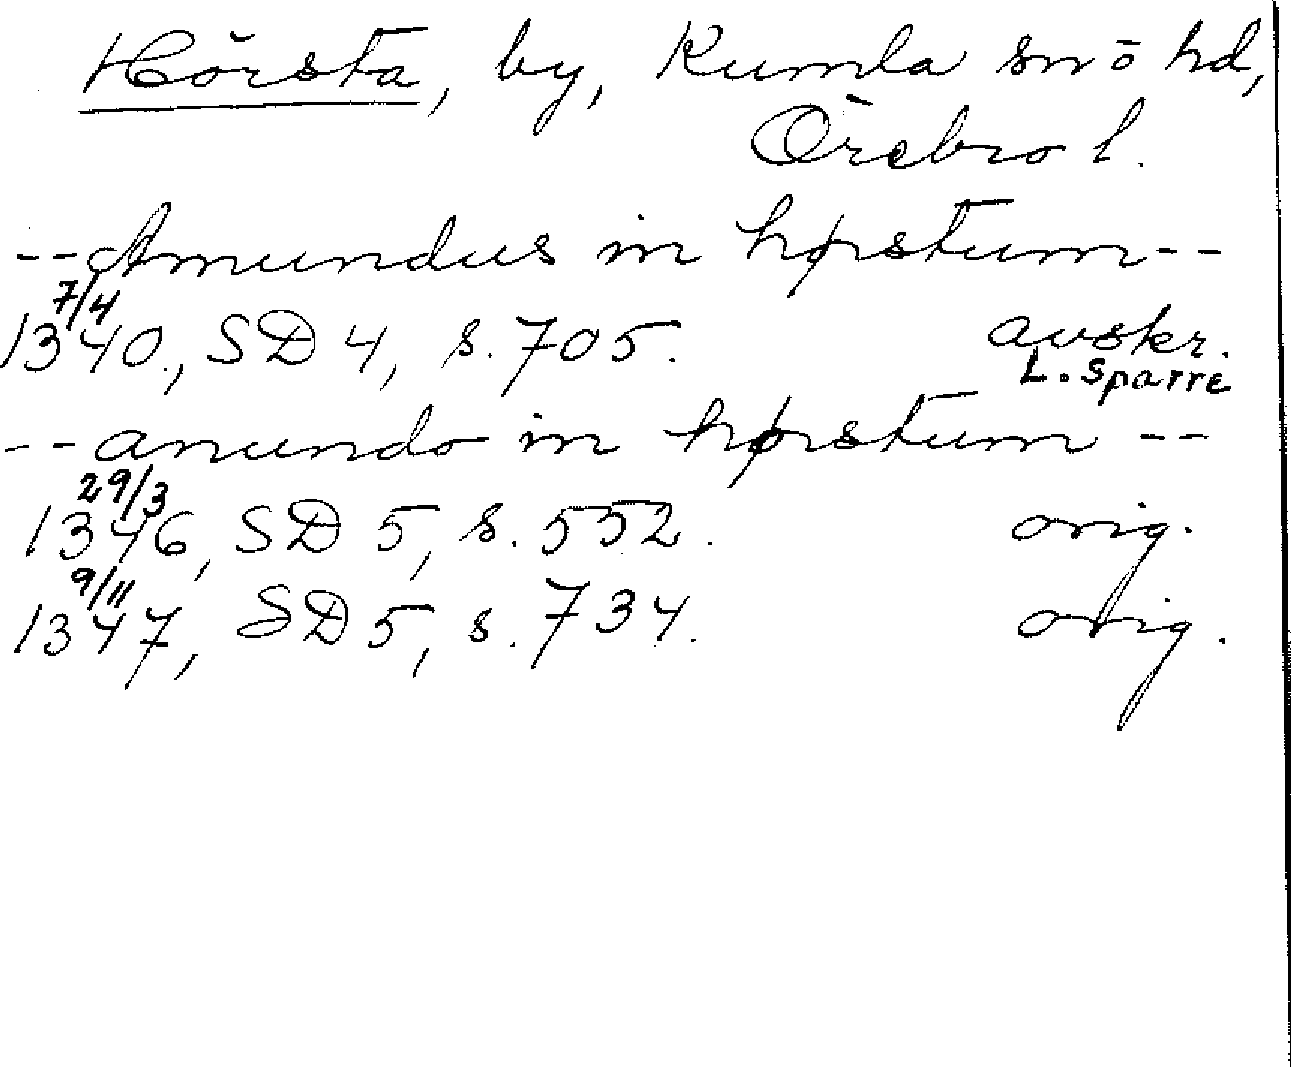 Hörsta, by, Kumla sn ō hd,
Örebro l.
--Amundus in hørstum--
7/4
1340, SD 4, s. 705. avskr.
L. Sparre
--anundo in hørstum--
29/3
1346, SD 5, s. 552. orig.
9/11
1347, SD 5, s. 734. orig.